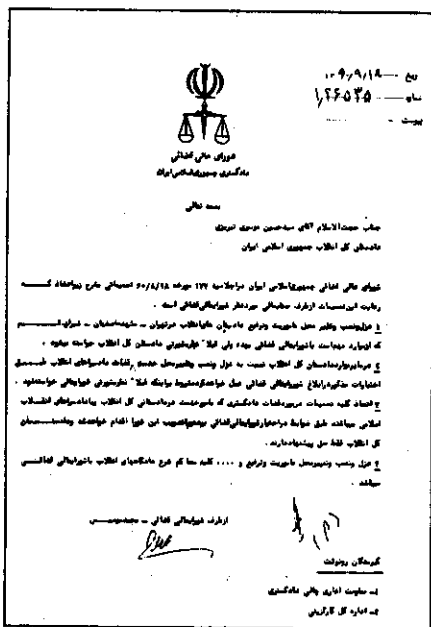 ۶۰/۹/۱۸
۱/۲۶۵۳۵
پیوست
شورای عالی قضائی
دادگستری جمهوری اسلامی ایران
بسمه تعالی
جناب حجت‌الاسلام آقای سید حسین موسوی تبریزی
دادستان کل انقلاب جمهوری اسلامی ایران
شورای عالی قضائی جمهوری اسلامی ایران در اجلاسیه ۱۲۲ مورخه ۶۰/۸/۱۸ تصمیماتی بشرح زیر اتخاذ کـــه
رعایت این تصمیمات از طرف جنابعالی مورد نظر شورایعالی قضائی است .
۱ عزل و نصب و تغییر محل ماموریت و ترفیع دادستان های انقلاب در تهران ـ مشهد اصفهان ـ شیراز
که با شورایعالی قضائی بوده ولی قبلا" نظر مشورتی دادستان کل انقلاب خواسته میشود .
۲ در سایر موارد دادستان کل انقلاب نسبت به عزل ونصب وتغییر محل خدمت قضات دادسراهای انقلاب
اختیارات شورایعالی قضائی عمل خواهد کرد مشروط براینکه قبلا" نظر مشورتی شورایعالی خواسته شود .
۳ اتخاذ کلیه تصمیمات در مورد قضات دادگستری که مامور خدمت در دادستانی کل انقلاب یا دادسراهای انقـــلاب
اسلامی میباشند طبق ضوابط در اختیار شورایعالی قضائی بوده و این شورا اقدام خواهد
کل انقلاب فقط حق پیشنهاد دارند .
۴ عزل ونصب وتغییر محل ماموریت وترفیع و .... کلیه حکام شرع دادگاههای انقلاب با شورایعالی قضائـــی
میباشد .
از طرف شورایعالی قضائی ـ
گیرندگان رونوشت
۱ـ معاونت اداری مالی دادگستری
۲ـ اداره کل کارگزینی